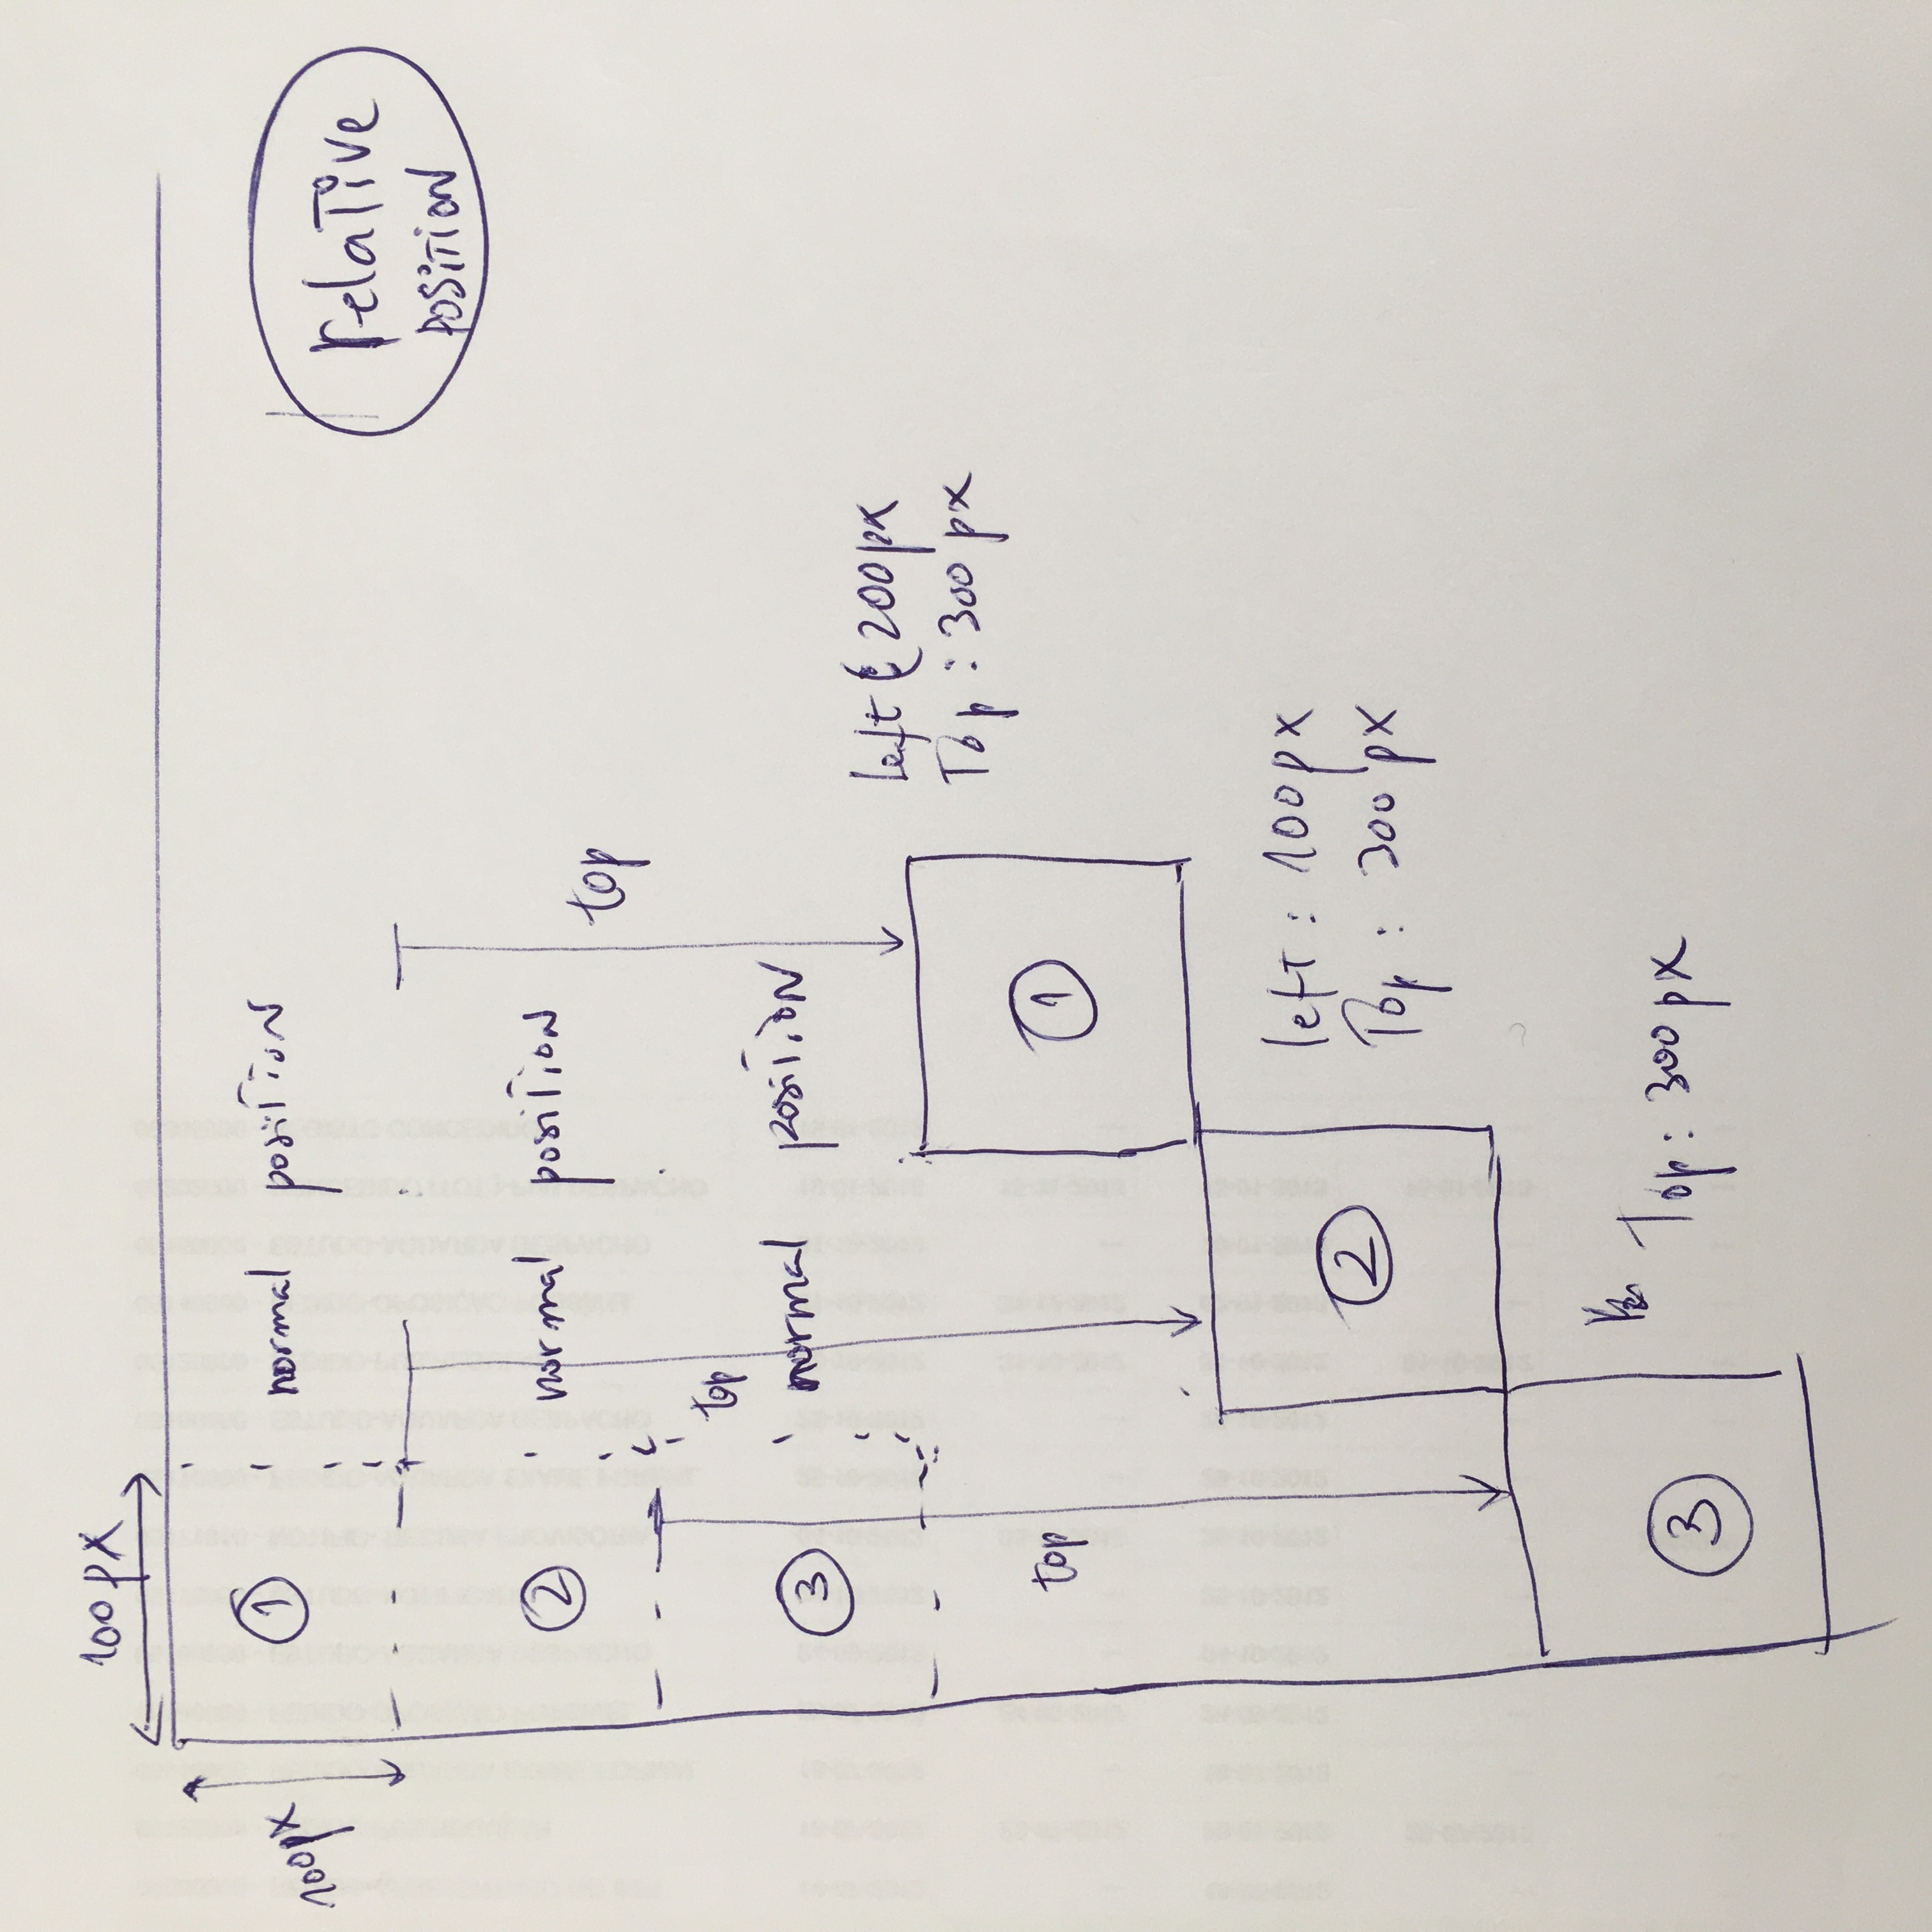 100px
100px
1 normal position
relative
position
2 normal position
top
top
3 normal position
left : 200px
Top : 300 px
top
1
left : 100px
Top : 300 px
2
Top : 300px
3